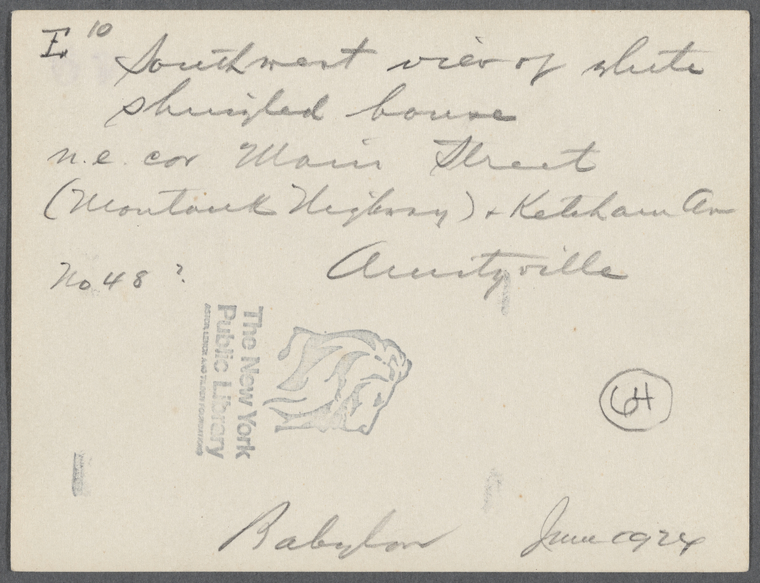 E 10
Southwest view of white
shingled house
n.e. cor Main Street
(Montauk Highway) + Ketcham Av
Amityville
No 48 ?
The New York
Public Library
ASTOR, LENOX AND TILDEN FOUNDATIONS
64
Babylon June 1924